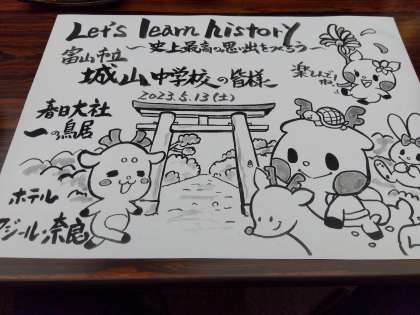 Let's learn history
〜史上最高の思い出をつくろう〜
富山市立
城山中学校の皆様
2023.5.13(土)
楽しんで
ね!
春日大社
一の鳥居
ホテル
アジール・奈良